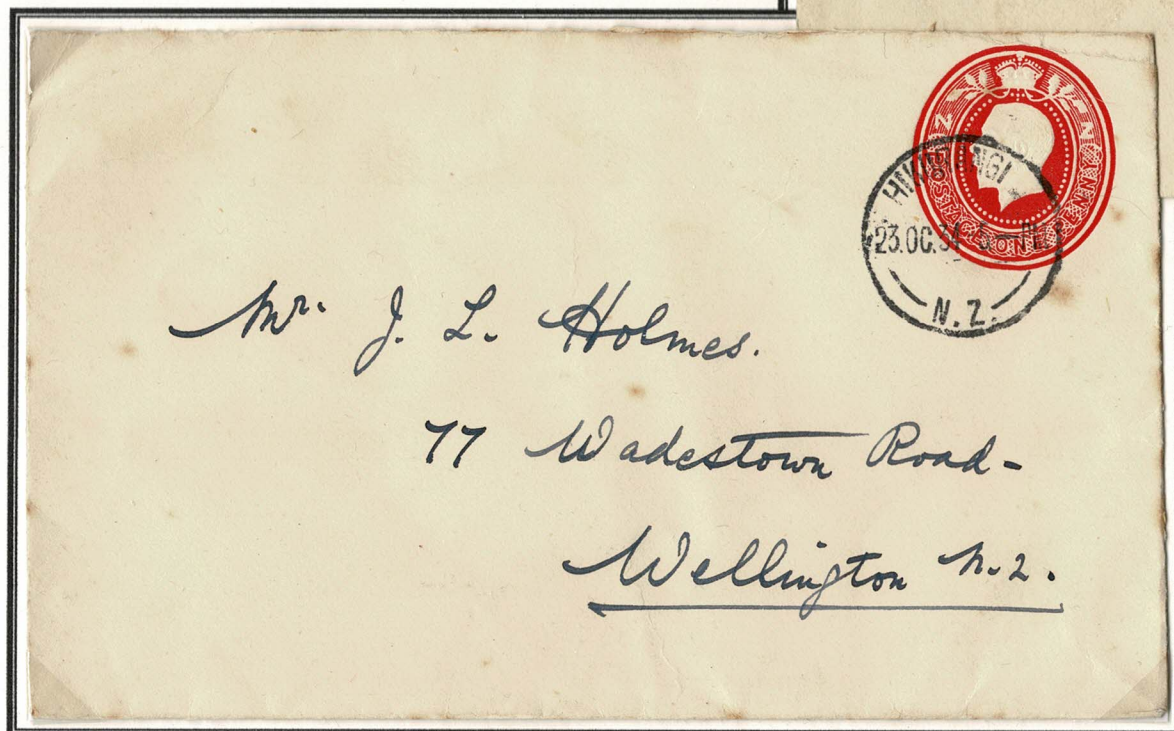 N Z POSTAGE ONE PENNY
HIKURANGI
23.OC.34
N.Z.
Mr. J. L. Holmes.
77 Wadestown Road-
Wellington N.Z.